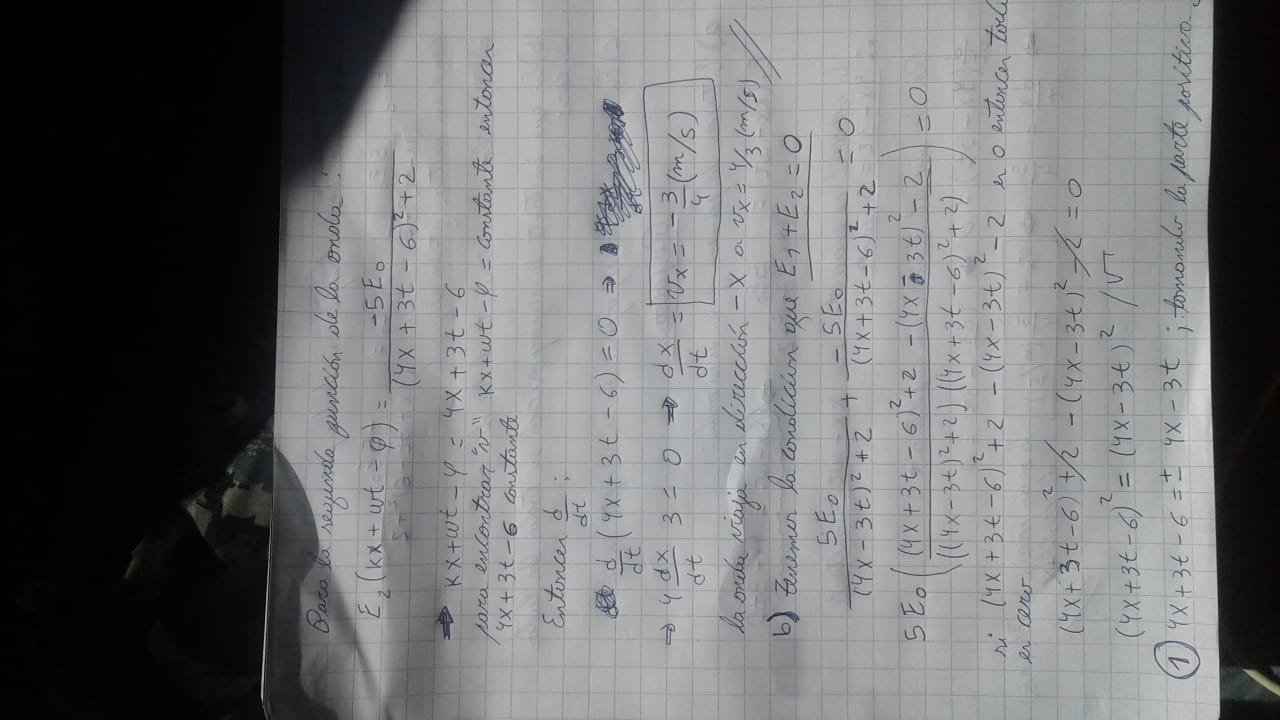 Para la segunda función de la onda:
E₂(kx + wt - φ) = -5E₀ / ((4x + 3t - 6)² + 2)
⇒ kx + wt - φ = 4x + 3t - 6
para encontrar "v" kx + wt - φ = constante entonces
4x + 3t - 6 constante
Entonces d/dt :
d/dt (4x + 3t - 6) = 0 ⇒
⇒ 4 dx/dt 3 = 0 ⇒ dx/dt = Vx = -3/4 (m/s)
la onda viaja en dirección -x a vx = 4/3 (m/s) //
b) tenemos la condición que E₁ + E₂ = 0
5E₀ / ((4x - 3t)² + 2) + -5E₀ / ((4x + 3t - 6)² + 2) = 0
5E₀ ( ((4x + 3t - 6)² + 2 - (4x - 3t)² - 2) / (((4x - 3t)² + 2) ((4x + 3t - 6)² + 2)) ) = 0
si (4x + 3t - 6)² + 2 - (4x - 3t)² - 2 es 0 entonces
es cero
(4x + 3t - 6)² + 2 - (4x - 3t)² - 2 = 0
(4x + 3t - 6)² = (4x - 3t)² /√
① 4x + 3t - 6 = ± 4x - 3t ; tomando la parte positiva